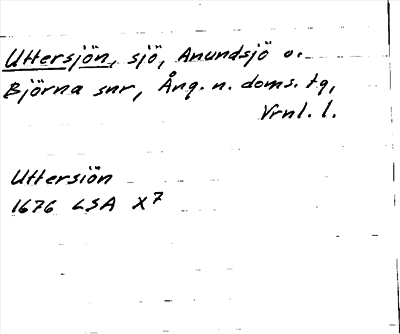 Uttersjön, sjö, Anundsjö o.
Björna snr, Ång. n. doms. tg,
Vrnl. l.
Uttersiön
1676 LSA X7